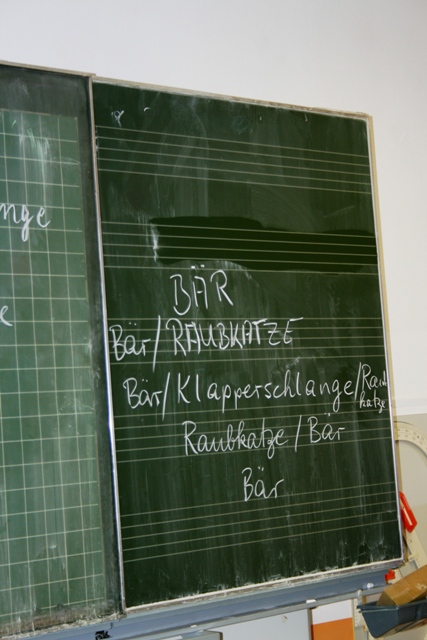 nge
e
BÄR
Bär/RAUBKATZE
Bär/Klapperschlange/Raubkatze
Raubkatze/Bär
Bär